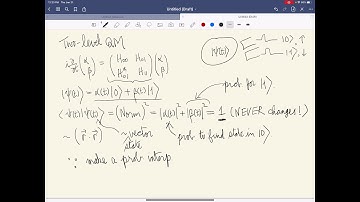 Untitled (Draft)
Two-level QM
i ∂/∂t (α β) = (H00 H01 H01* H11) (α β)
|ψ(t)⟩ |0⟩, ↑ |1⟩, ↓
|ψ(t)⟩ = α(t)|0⟩ + β(t)|1⟩ prob for |1⟩
⟨ψ(t)|ψ(t)⟩ = (Norm)² = |α(t)|² + |β(t)|² = 1 (NEVER changes!)
~ (r⃗ · r⃗) ~ vector state prob to find state in |0⟩
∵ make a prob interp